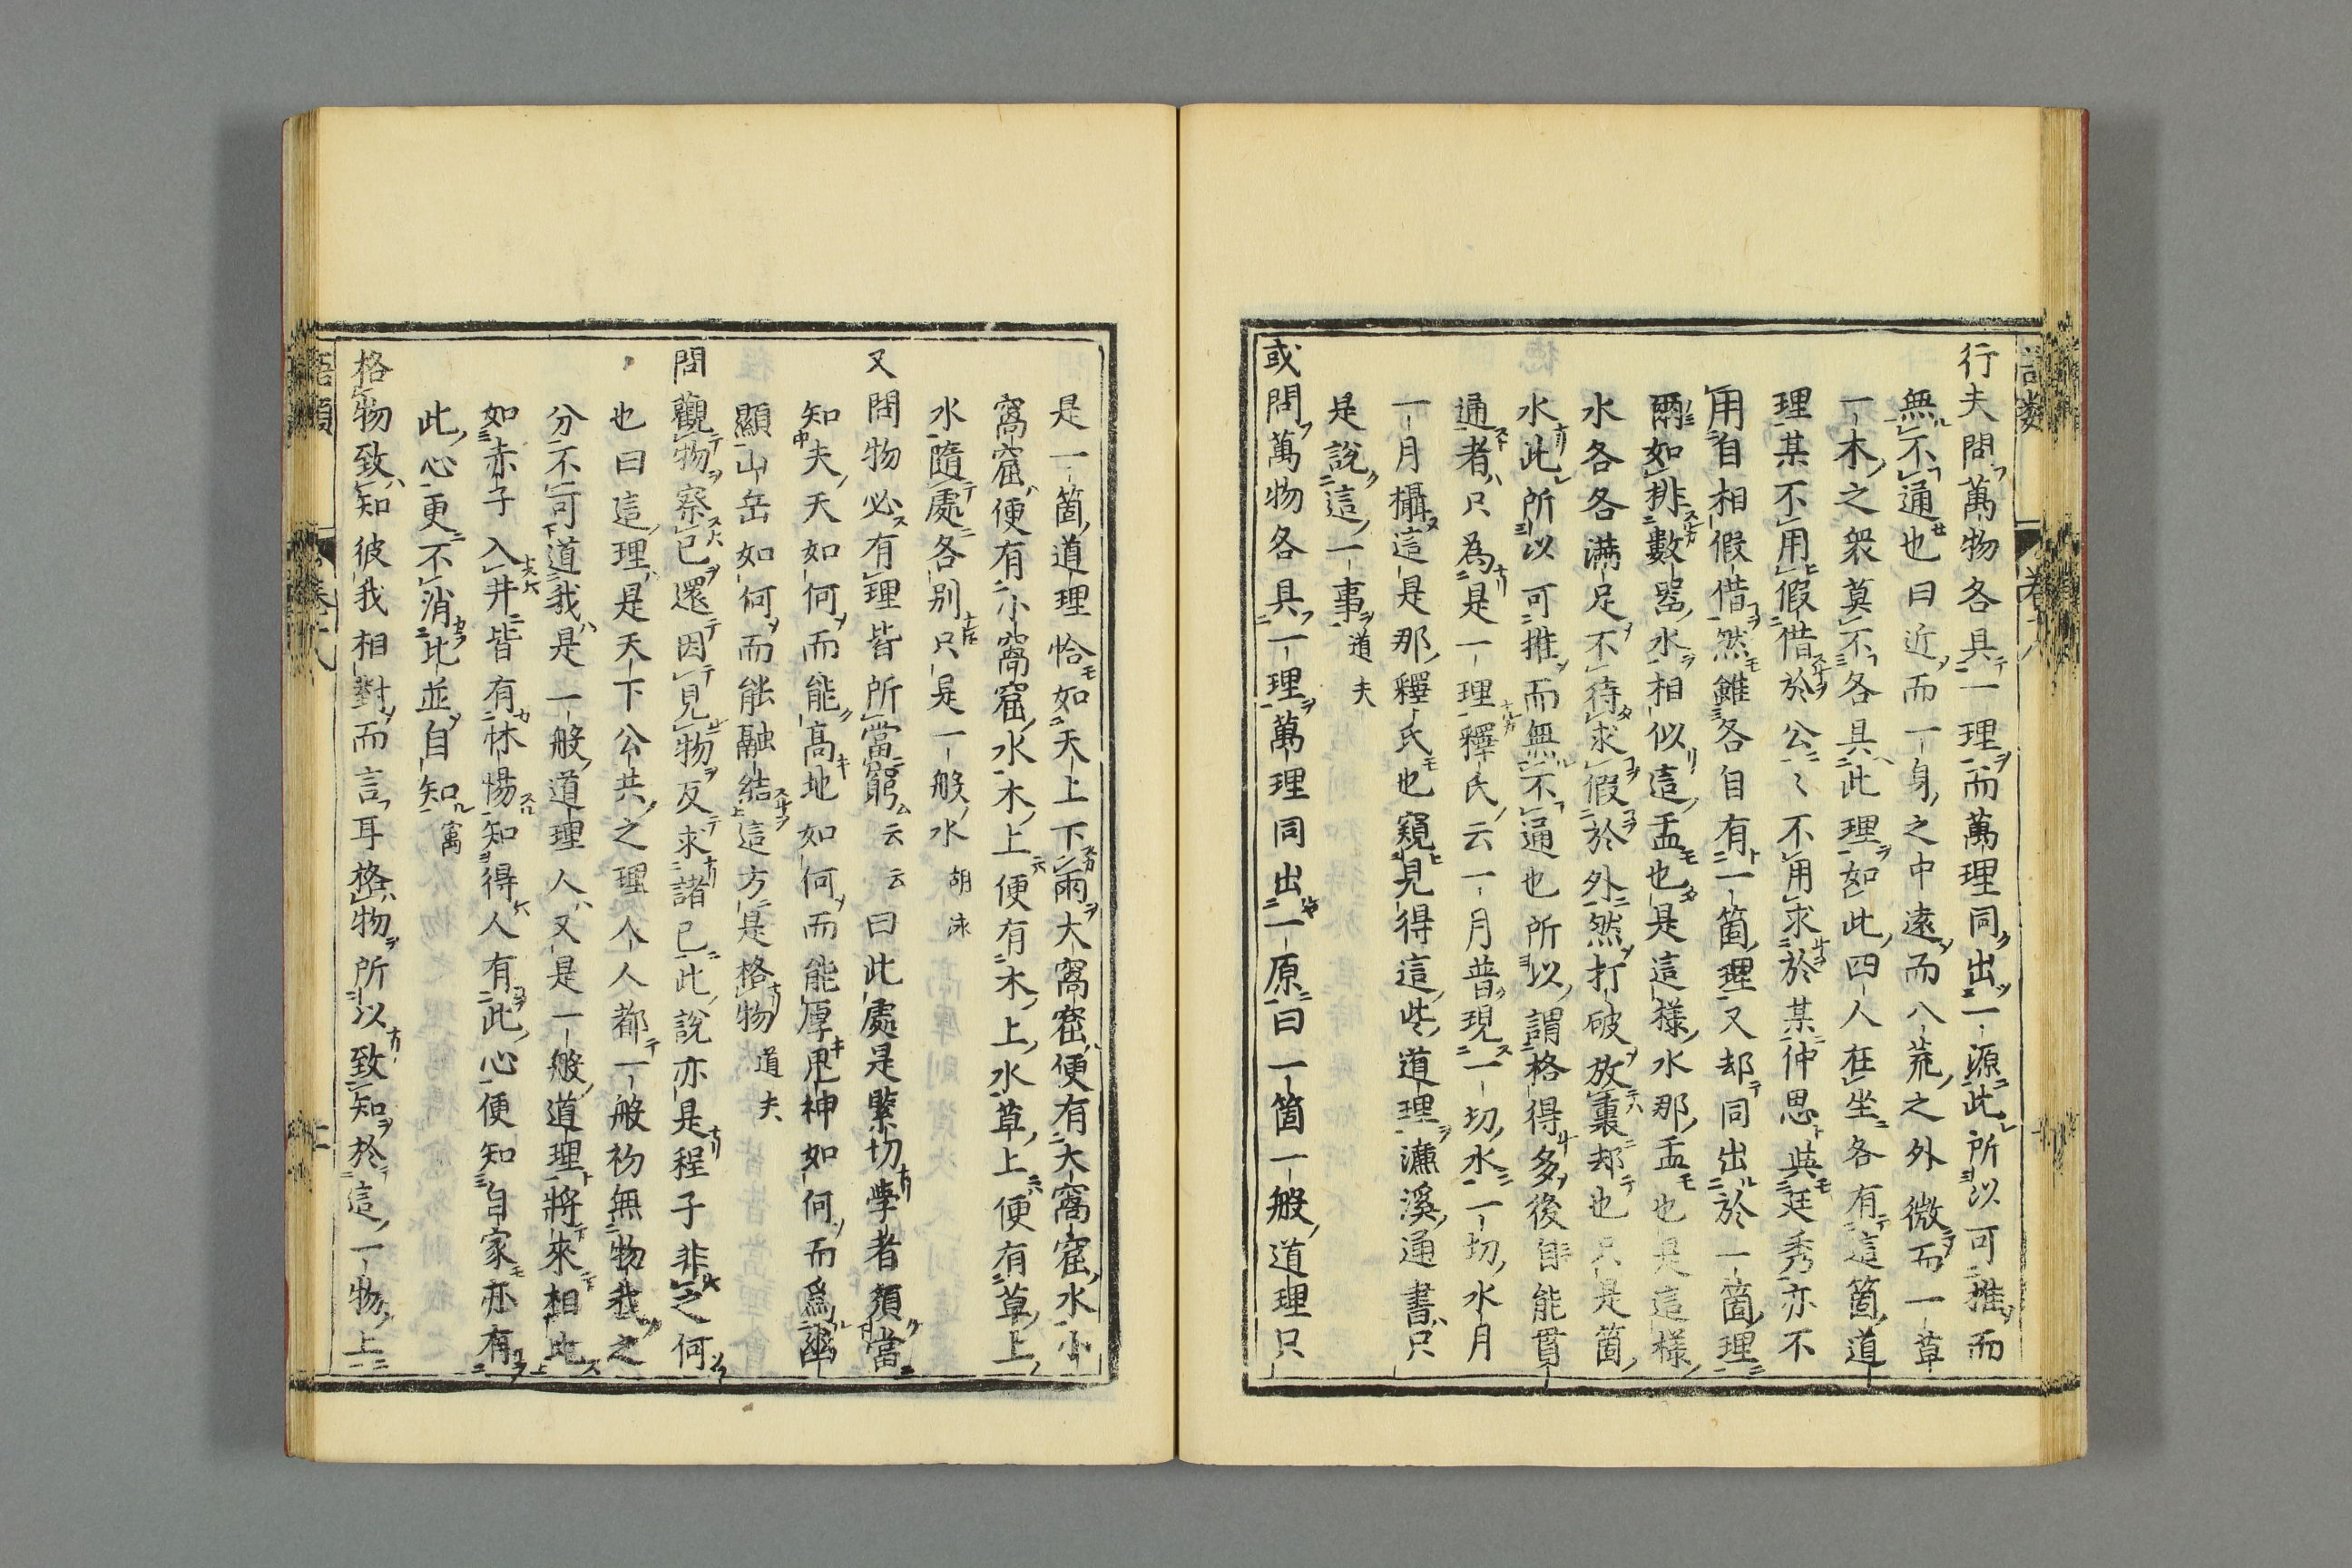 行夫問萬物各具一理而萬理同出一源此所以可推而
無不通也曰近而一身之中遠而八荒之外微而一草
一木之衆莫不各具此理如此四人在坐各有這箇道
理某不用假借於公公不用求於某仲思與廷秀亦不
用自相假借然雖各自有一箇理又却同出於一箇理
爾如排數器水相似這盂也是這樣水那盂也是這樣
水各各滿足不待求假於外然打破放裏却也只是箇
水此所以可推而無不通也所以謂格得多後自能貫
通者只為是一理釋氏云一月普現一切水一切水月
一月攝這是那釋氏也窺見得這些道理濂溪通書只
是說這一事道夫
或問萬物各具一理萬理同出一原曰一箇一般道理只
是一箇道理恰如天上下雨大窩窟便有大窩窟水小
窩窟便有小窩窟水木上便有木上水草上便有草上
水隨處各別只是一般水 胡泳
又問物必有理皆所當窮云云曰此處是緊切學者須當
知夫天如何而能高地如何而能厚鬼神如何而為幽
顯山岳如何而能融結這方是格物 道夫
問觀物察己還因見物反求諸己此說亦是程子非之何
也曰這理是天下公共之理人人都一般初無物我之
分不可道我是一般道理人又是一般道理將來相比
如赤子入井皆有怵惕知得人有此心便知自家亦有
此心更不消比並自知 㝢
格物致知彼我相對而言耳格物所以致知於這一物上
語類
卷十八
二